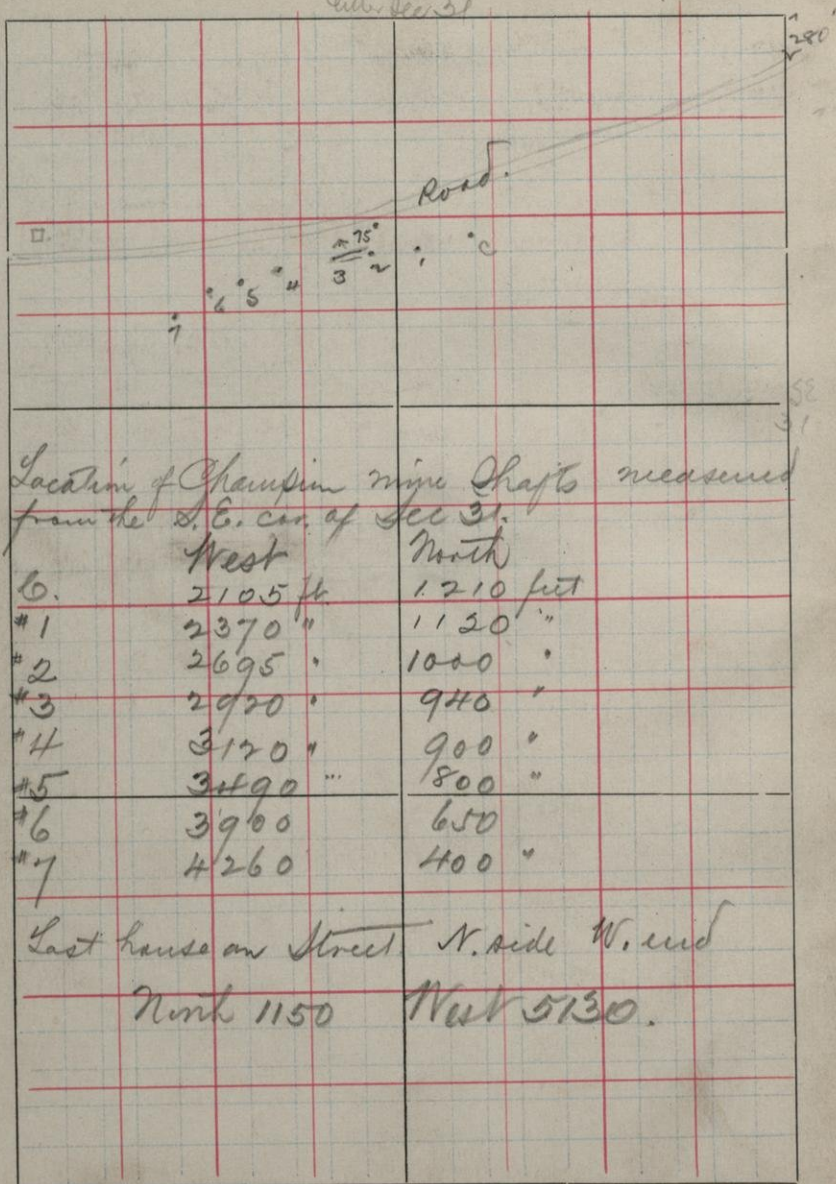 280
Road.
75
C
3
2
1
4
5
6
7
SE
31
Location of Champion mine Shafts measured
from the S.E. cor. of Sec 31.
West North
C. 2105 ft. 1210 feet
#1 2370 " 1120 "
#2 2695 " 1000 "
#3 2920 " 940 "
#4 3120 " 900 "
#5 3490 " 800 "
#6 3900 650
#7 4260 400 "
Last house on Street N. side W. end
North 1150 West 5130.